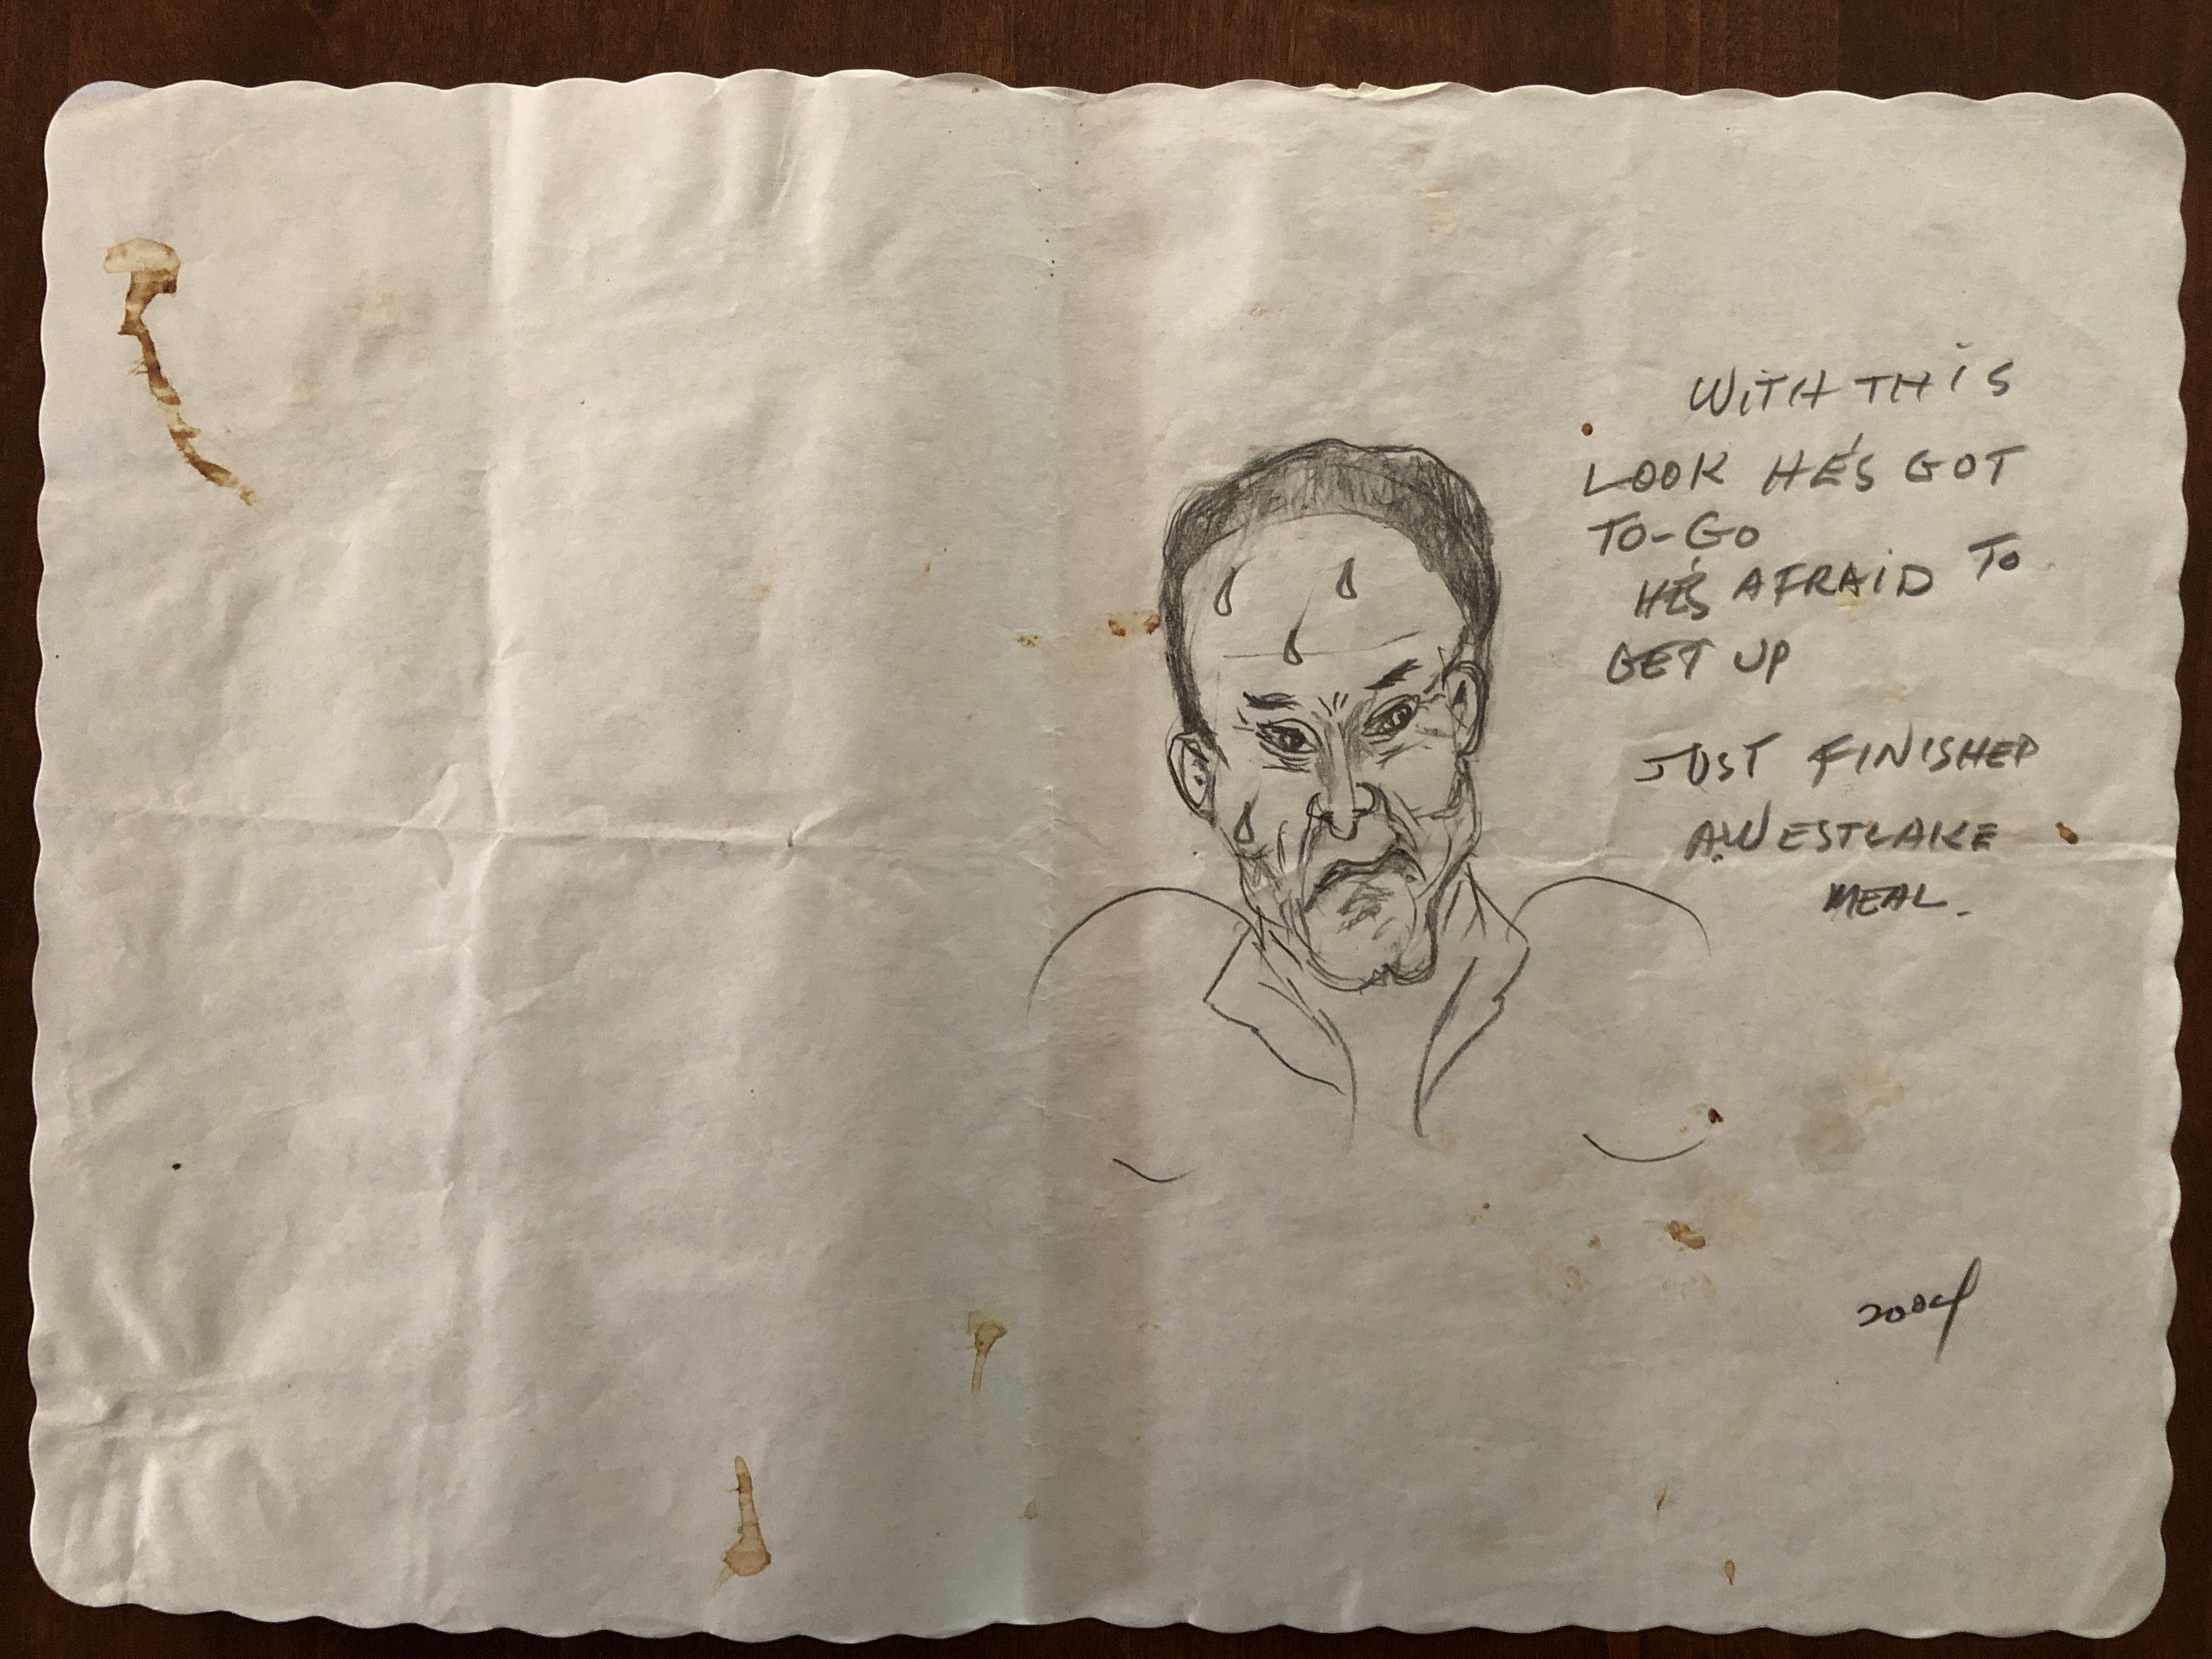 WITH THIS
LOOK HE'S GOT
TO-GO
HE'S AFRAID TO
GET UP
JUST FINISHED
A WESTLAKE
MEAL.
2004